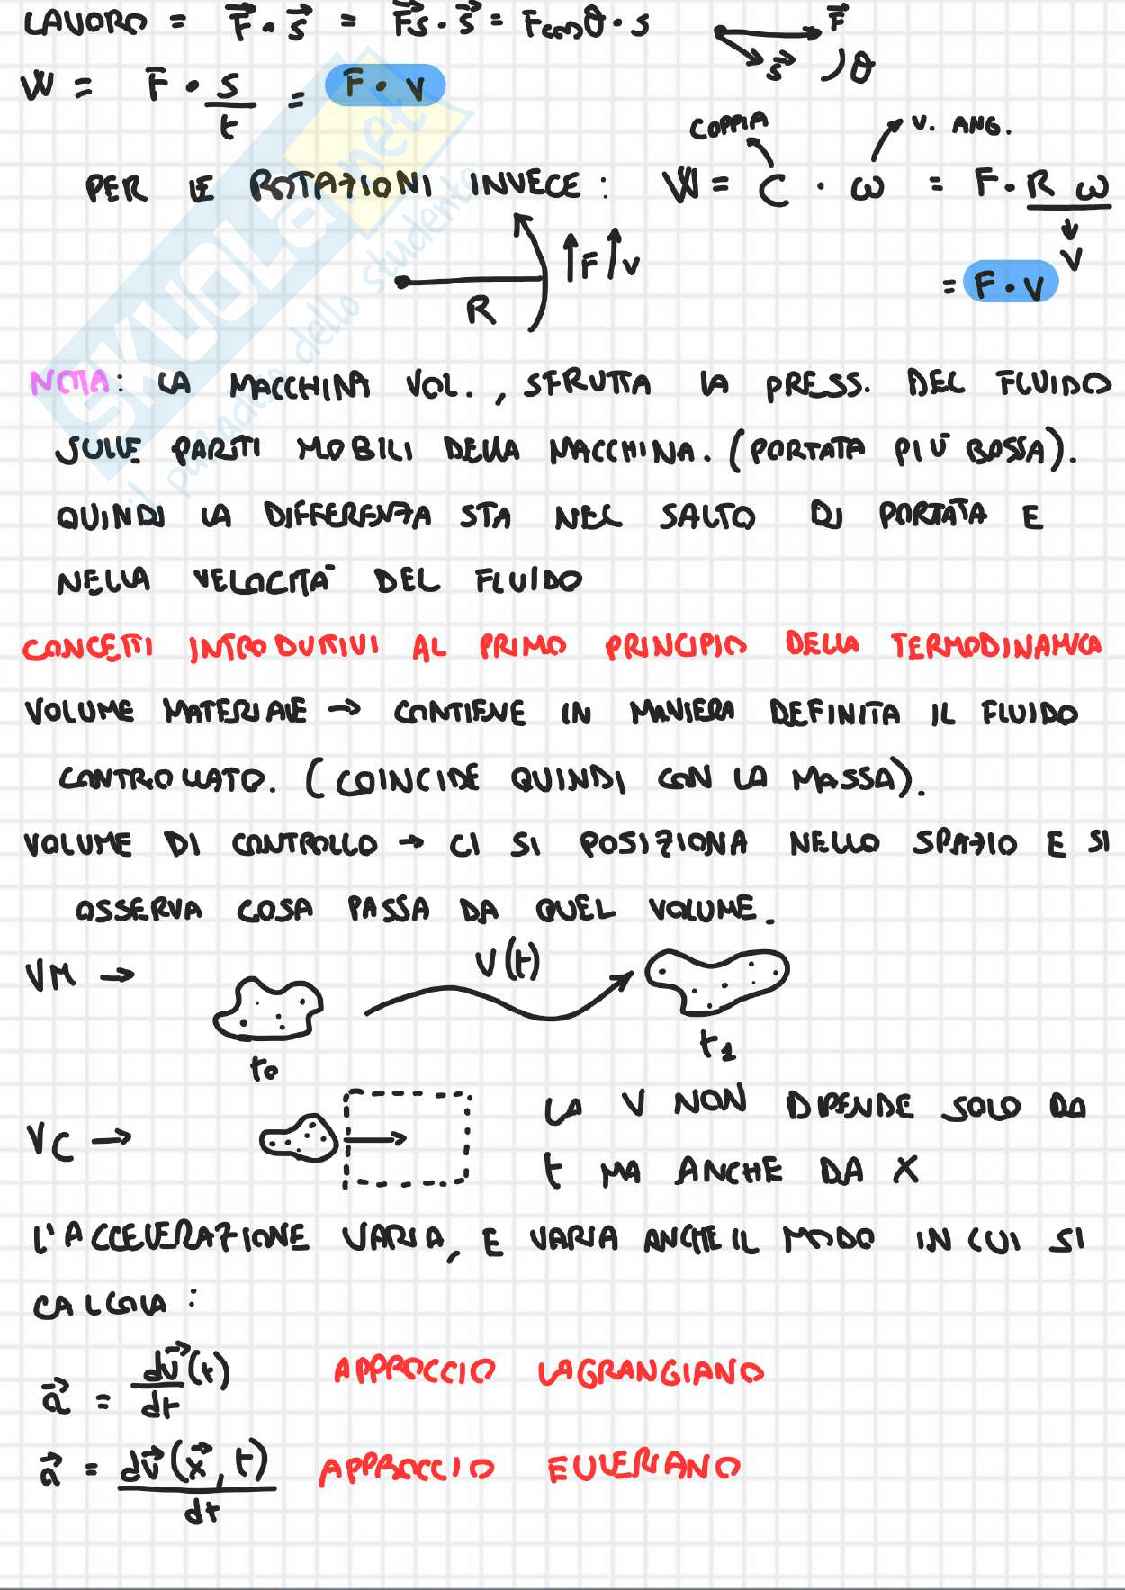 LAVORO = F⃗ · s⃗ = F⃗s · s⃗ = Fcosθ · s
F⃗
s⃗ )θ
W = F · s/t = F · v
COPPIA
V. ANG.
PER LE ROTAZIONI INVECE: W = C · ω = F · R ω
↓
V
R
↑F ↑v
= F · v
NOTA: LA MACCHINA VOL., SFRUTTA LA PRESS. DEL FLUIDO
SULLE PARTI MOBILI DELLA MACCHINA. (PORTATA PIÙ BASSA).
QUINDI LA DIFFERENZA STA NEL SALTO DI PORTATA E
NELLA VELOCITÀ DEL FLUIDO
CONCETTI INTRODUTTIVI AL PRIMO PRINCIPIO DELLA TERMODINAMICA
VOLUME MATERIALE → CONTIENE IN MANIERA DEFINITA IL FLUIDO
CONTROLLATO. (COINCIDE QUINDI CON LA MASSA).
VOLUME DI CONTROLLO → CI SI POSIZIONA NELLO SPAZIO E SI
OSSERVA COSA PASSA DA QUEL VOLUME.
VM →
V(t)
t₀
t₁
VC →
LA V NON DIPENDE SOLO DA
t MA ANCHE DA X
L'ACCELERAZIONE VARIA, E VARIA ANCHE IL MODO IN CUI SI
CALCOLA:
a⃗ = dv⃗(t)/dt APPROCCIO LAGRANGIANO
a⃗ = dv⃗(x⃗, t)/dt APPROCCIO EULERIANO
SKUOLA.net
il paradiso dello studente